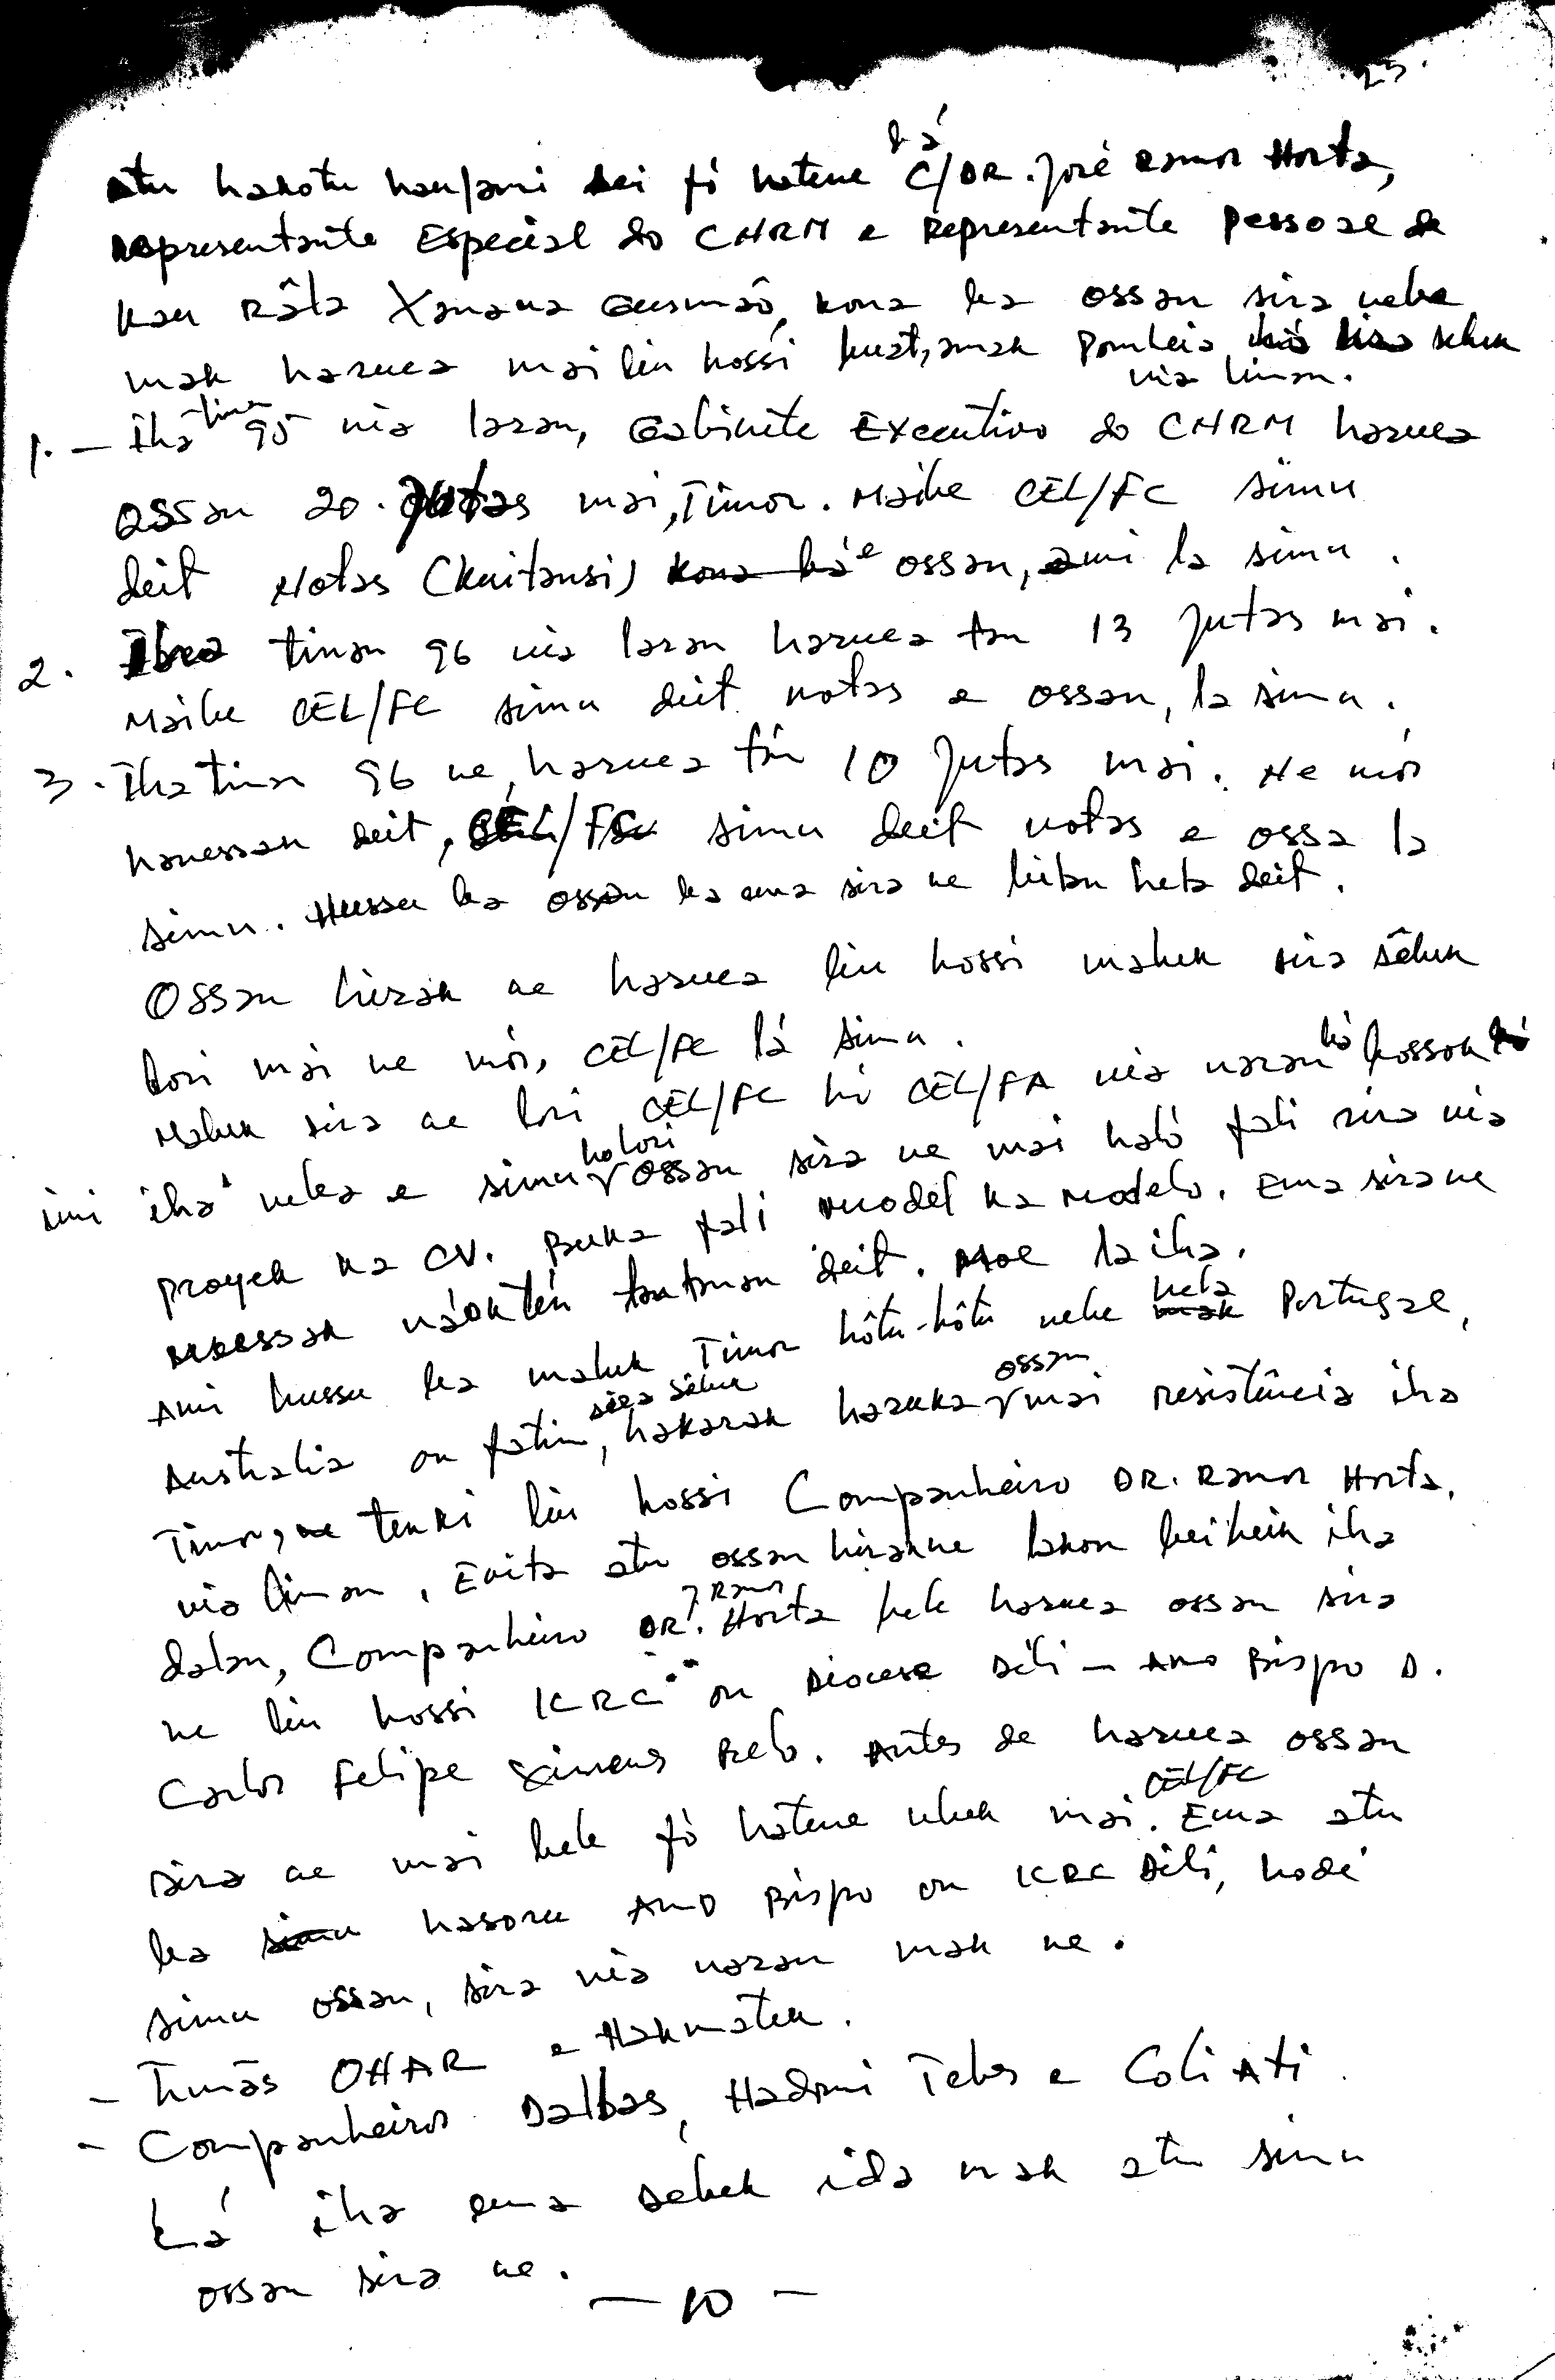 25.
atu hakotu hau/ami sei fó hatene bá C/DR. José Ramos Horta,
Representante Especial do CNRM e Representante Pessoal de
Kay Rála Xanana Gusmão, kona ba ossan sira nebe
mak haruca mai liu hossi
nia liman.
1. - Iha tinan 95 nia laran, Gabinete Executivo do CNRM haruca
ossan 20. Jutas mai, Timor. Maibe CEL/FC simu
deit Notas (Kuitansi) e ossan, ami la simu.
2. tinan 96 nia laran haruca tan 13 Jutas mai.
Maibe CEL/FC simu deit notas e ossan, la simu.
3. Iha tinan 96 ne, haruca tán 10 Jutas mai. Ne mós
hanessan deit, CEL/FC simu deit notas e ossa la
simu. Hussu ba ossan ba ema sira ne liutan heta deit.
Ossan hirak ne haruca liu hossi maluk sira sêluk
lori mai ne mós, CEL/FC lá simu.
Maluk sira ne lori CEL/FC hó CEL/FA nia naran hó
imi iha neba e simu halori ossan sira ne mai haló fali sira nia
proyek ka CV. Buka fali model ka modelo. Ema sira ne
náokten tantanan deit. Moe la iha.
Ami hussu ba maluk Timor hôtu-hôtu nebe heta Portugal,
Australia ou fatin sira sêluk, hakarak haruka ossan mai resistência iha
Timor, tenki liu hossi Companheiro DR. Ramos Horta,
nia liman. Evita atu ossan hirak ne lakon beibeik iha
dalan, Companheiro DR. J. Ramos Horta bele haruca ossan sira
ne liu hossi ICRC ou Diocese Dili - Amo Bispo D.
Carlos Felipe Ximenes Belo. Antes de haruca ossan
sira ne mai bele fó hatene uluk mai CEL/FC. Ema atu
ba simu hasoru Amo Bispo ou ICRC Dili, hodi
simu ossan, sira nia naran mak ne.
- Tumás OHAR e Hakmatek.
- Companheiros Dalbas, Hadomi Tebes e Coli Ati.
Lá iha ema seluk ida mak atu simu
ossan sira ne.
- 10 -